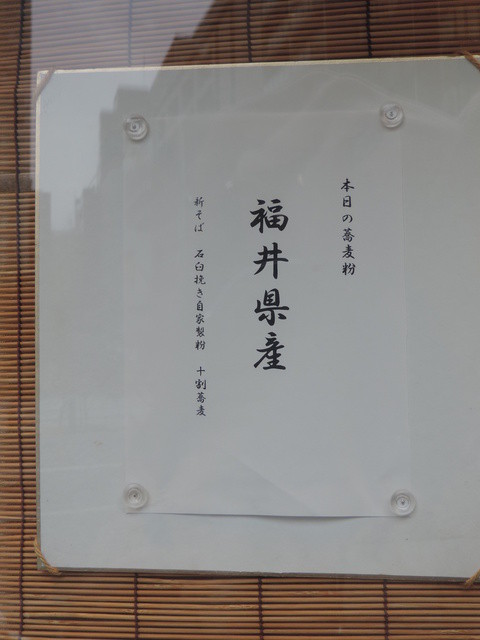 本日の蕎麦粉
福井県産
新そば 石臼挽き自家製粉 十割蕎麦